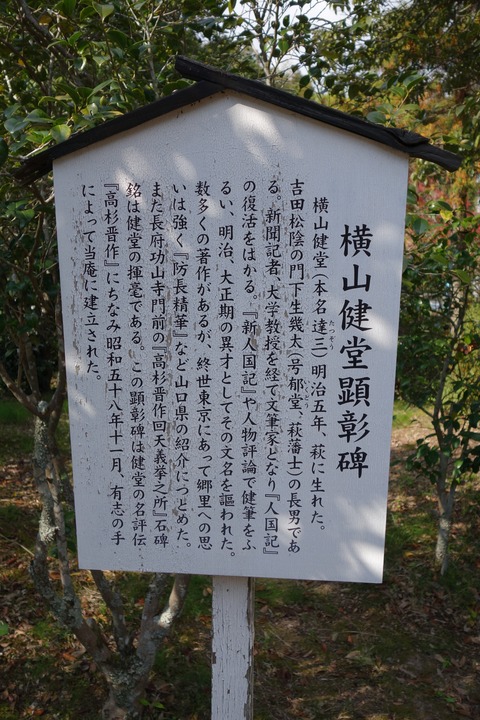 横山健堂顕彰碑
横山健堂(本名 達三)明治五年、萩に生れた。
たつぞう
吉田松陰の門下生幾太(号郁堂、萩藩士)の長男であ
る。新聞記者、大学教授を経て文筆家となり『人国記』
の復活をはかる。『新人国記』や人物評論で健筆をふ
るい、明治、大正期の異才としてその文名を謳われた。
数多くの著作があるが、終世東京にあって郷里への思
いは強く『防長精華』など山口県の紹介につとめた。
また長府功山寺門前の『高杉晋作回天義挙之所』石碑
銘は健堂の揮毫である。この顕彰碑は健堂の名評伝
『高杉晋作』にちなみ昭和五十八年十一月、有志の手
によって当庵に建立された。